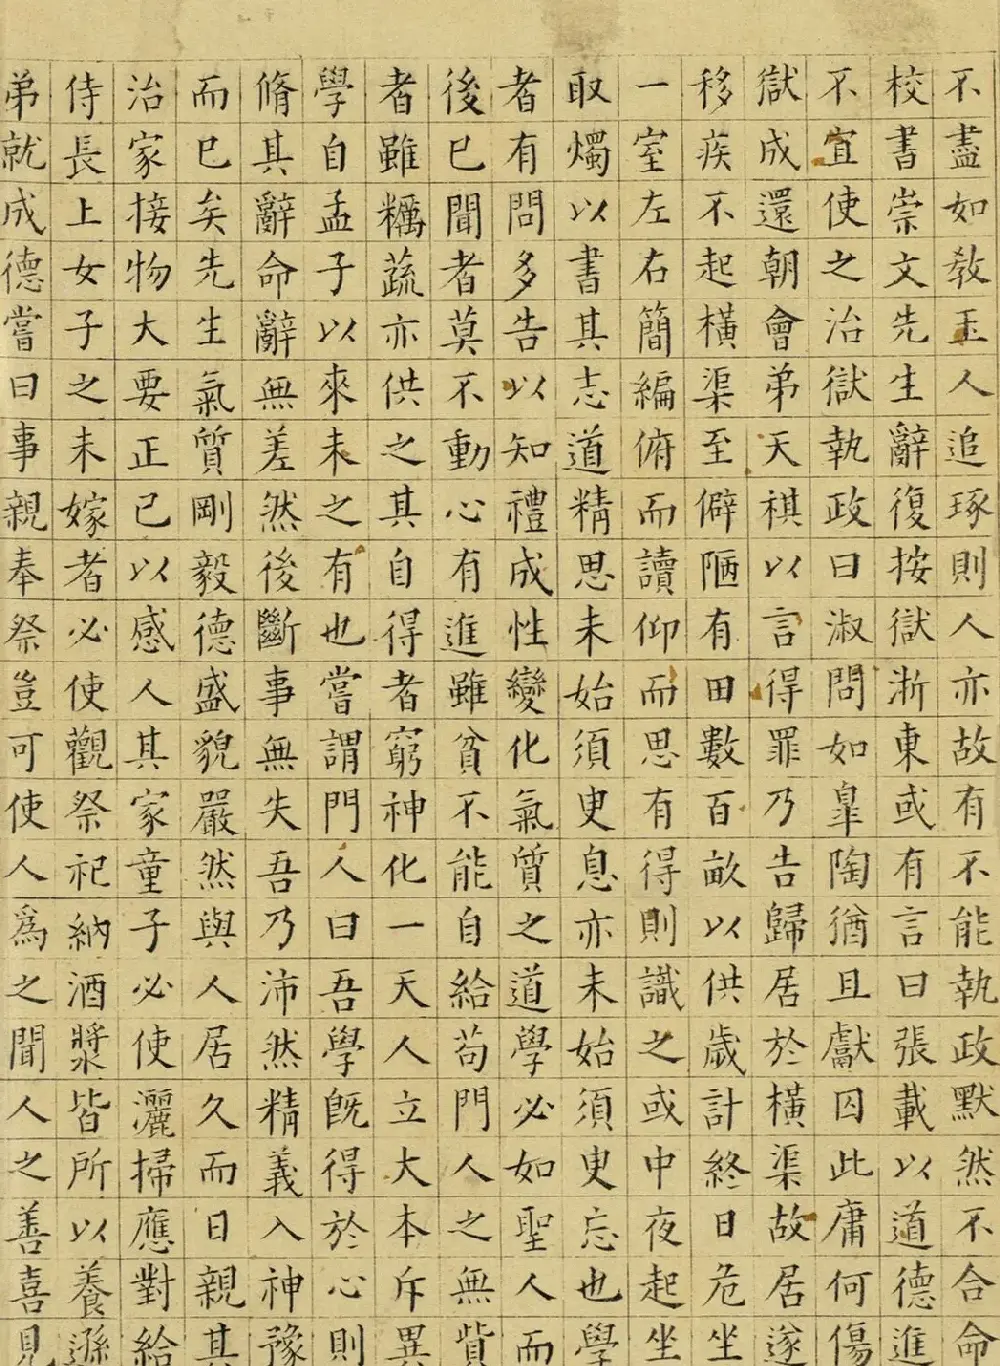 不盡如敎玉人追琢則人亦故有不能執政默然不合命
校書崇文先生辭復按獄浙東或有言曰張載以道德進
不宜使之治獄執政曰淑問如臯陶猶且獻囚此庸何傷
獄成還朝會弟天祺以言得罪乃告歸居於橫渠故居遂
移疾不起橫渠至僻陋有田數百畝以供歲計終日危坐
一室左右簡編俯而讀仰而思有得則識之或中夜起坐
取燭以書其志道精思未始須臾息亦未始須臾忘也學
者有問多告以知禮成性變化氣質之道學必如聖人而
後已聞者莫不動心有進雖貧不能自給苟門人之無貲
者雖糲蔬亦供之其自得者窮神化一天人立大本斥異
學自孟子以來未之有也嘗謂門人曰吾學旣得於心則
脩其辭命辭無差然後斷事無失吾乃沛然精義入神豫
而已矣先生氣質剛毅德盛貌嚴然與人居久而日親其
治家接物大要正己以感人其家童子必使灑掃應對給
侍長上女子之未嫁者必使觀祭祀納酒漿皆所以養遜
弟就成德嘗曰事親奉祭豈可使人爲之聞人之善喜見